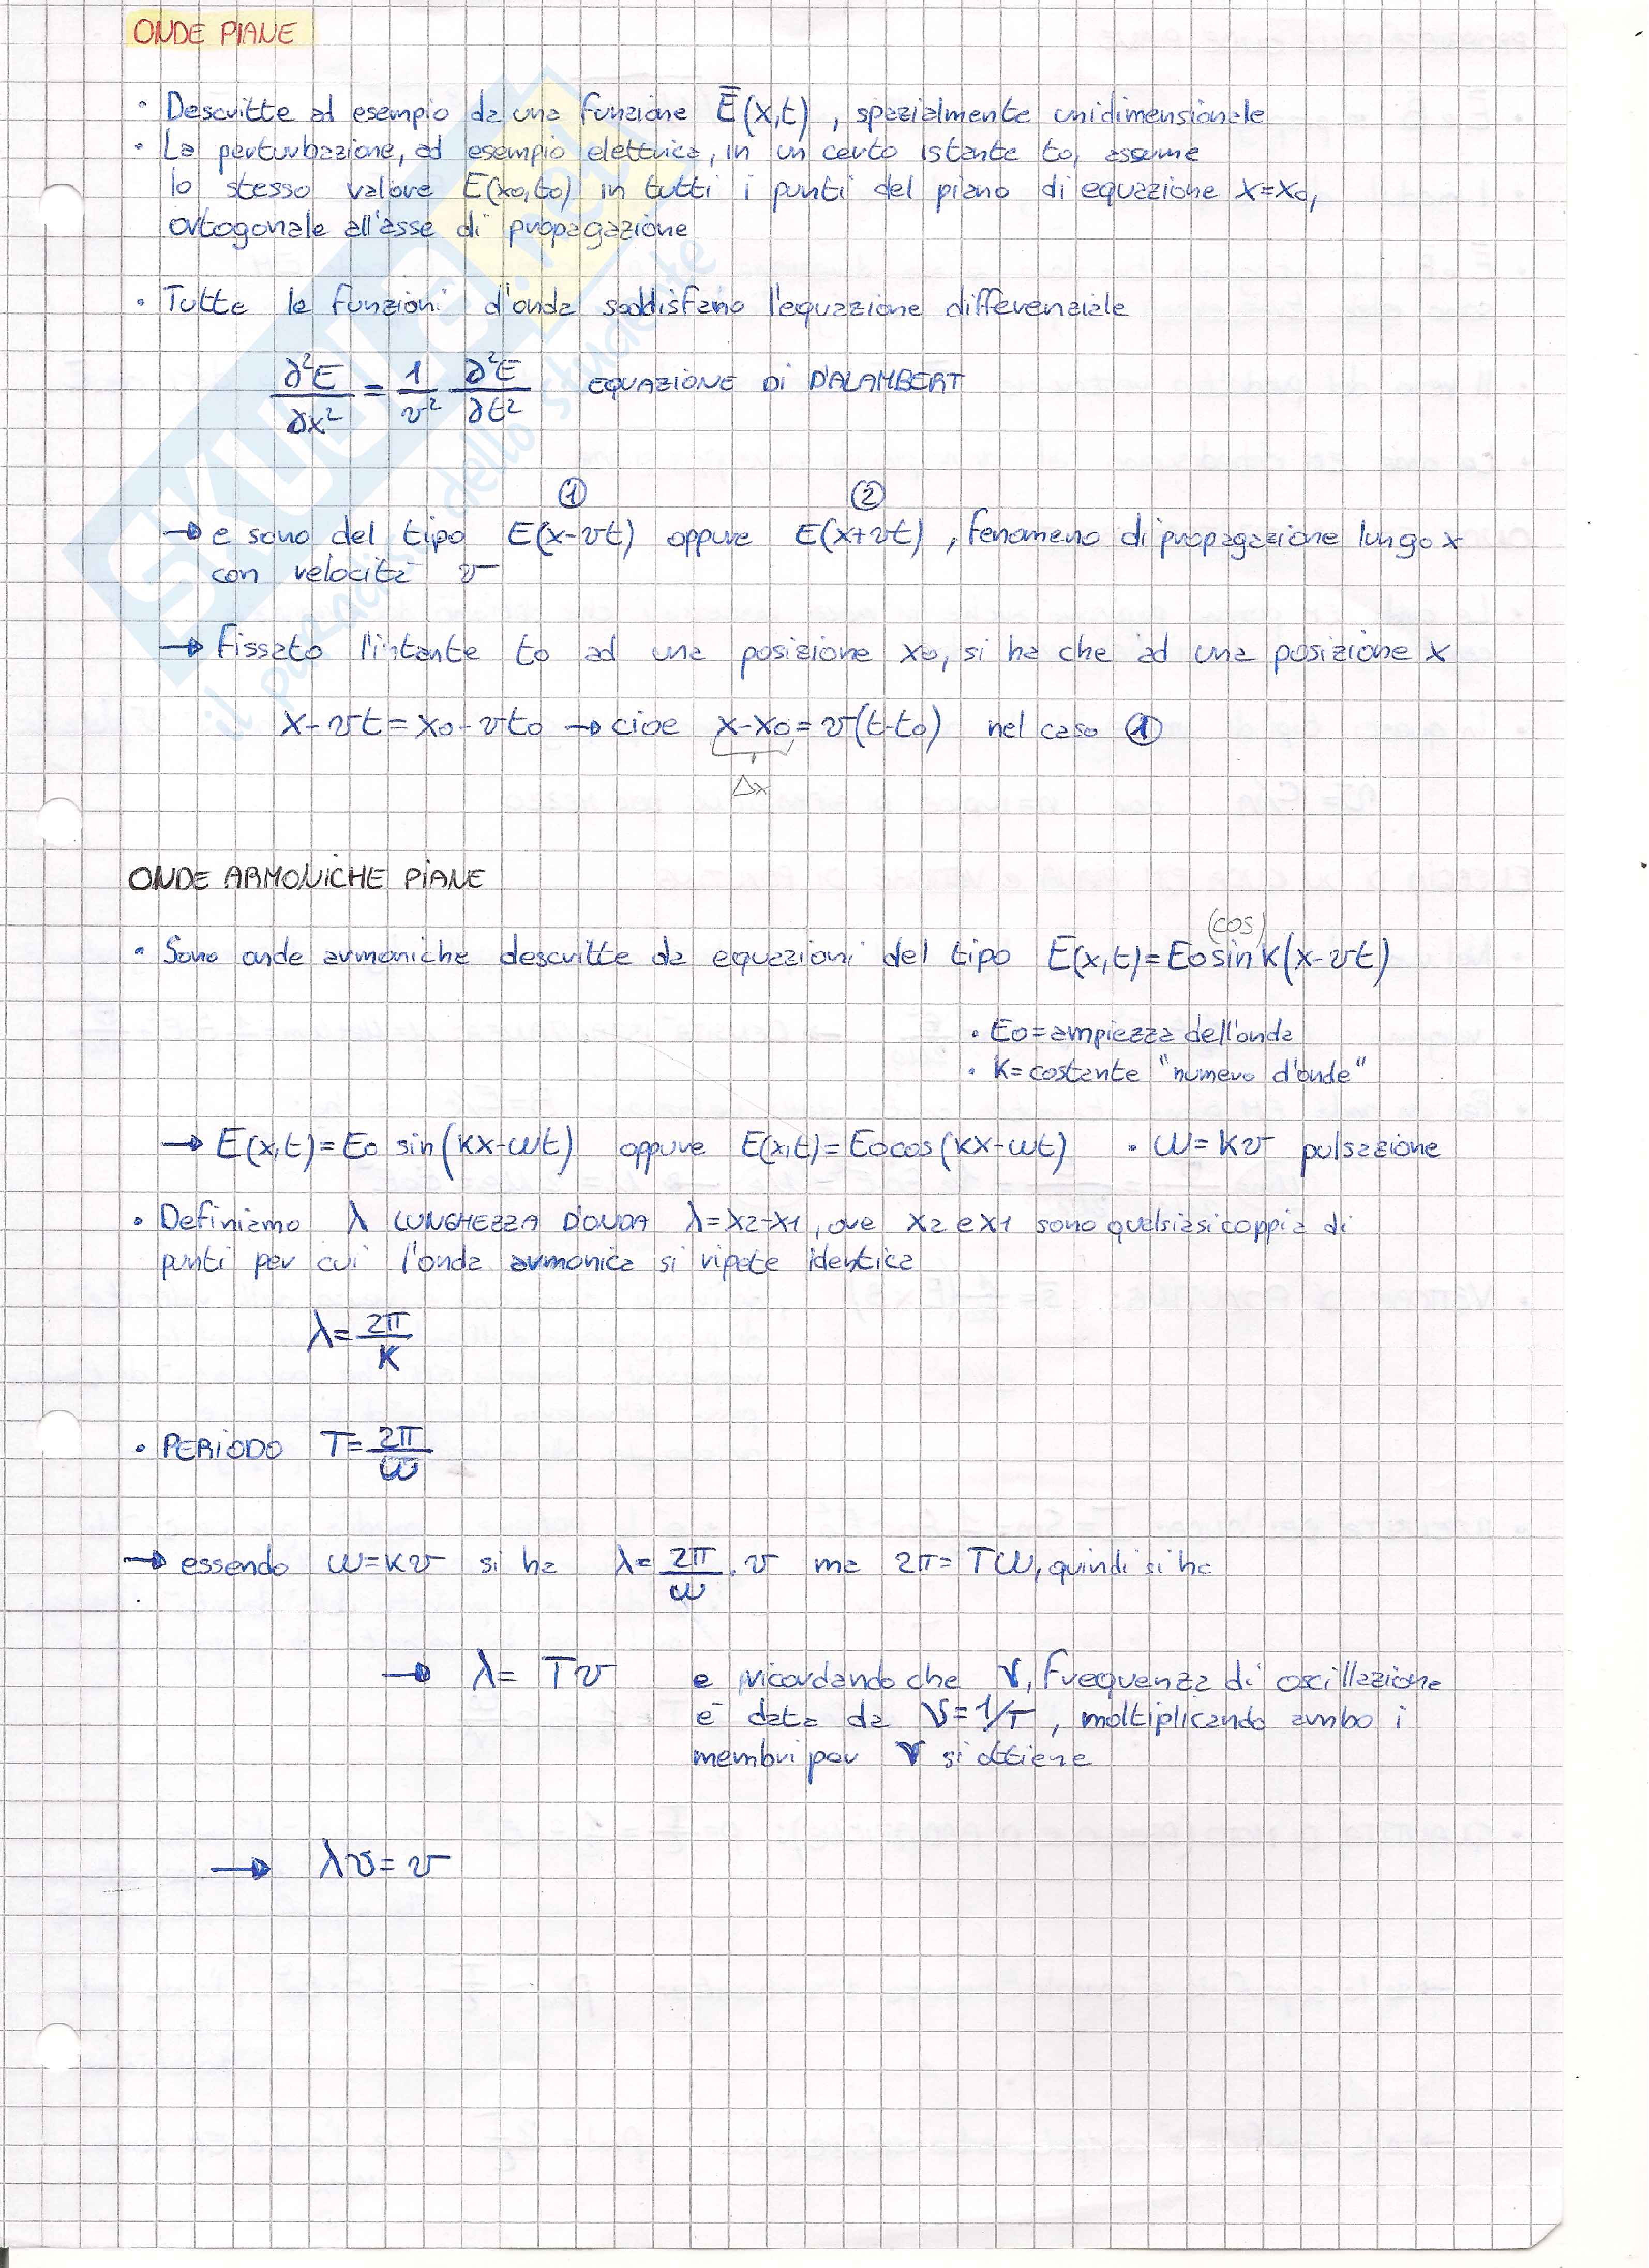 ONDE PIANE
• Descritte ad esempio da una funzione Ē(x,t), spazialmente unidimensionale
• La perturbazione, ad esempio elettrica, in un certo istante t0, assume
lo stesso valore E(x0,t0) in tutti i punti del piano di equazione x=x0,
ortogonale all'asse di propagazione
• Tutte le funzioni d'onda soddisfano l'equazione differenziale
∂²E/∂x² = 1/v² ∂²E/∂t² EQUAZIONE DI D'ALAMBERT
① ②
→ e sono del tipo E(x-vt) oppure E(x+vt), fenomeno di propagazione lungo x
con velocità v
→ fissato l'istante t0 ad una posizione x0, si ha che ad una posizione x
x-vt=x0-vt0 → cioè x-x0=v(t-t0) nel caso ①
Δx
ONDE ARMONICHE PIANE
(cos)
• Sono onde armoniche descritte da equazioni del tipo E(x,t)=E0 sin k(x-vt)
• E0=ampiezza dell'onda
• K=costante "numero d'onde"
→ E(x,t)=E0 sin(kx-ωt) oppure E(x,t)=E0cos(kx-ωt) • ω=kv pulsazione
• Definiamo λ LUNGHEZZA D'ONDA λ=x2-x1, ove x2 e x1 sono qualsiasi coppia di
punti per cui l'onda armonica si ripete identica
λ=2π/K
• PERIODO T=2π/ω
→ essendo ω=kv si ha λ=2π/ω · v ma 2π=Tω, quindi si ha
→ λ= Tv e ricordando che ν, frequenza di oscillazione
è data da ν=1/T, moltiplicando ambo i
membri per ν si ottiene
→ λν=v
SKUOLA.net
il paradiso dello studente